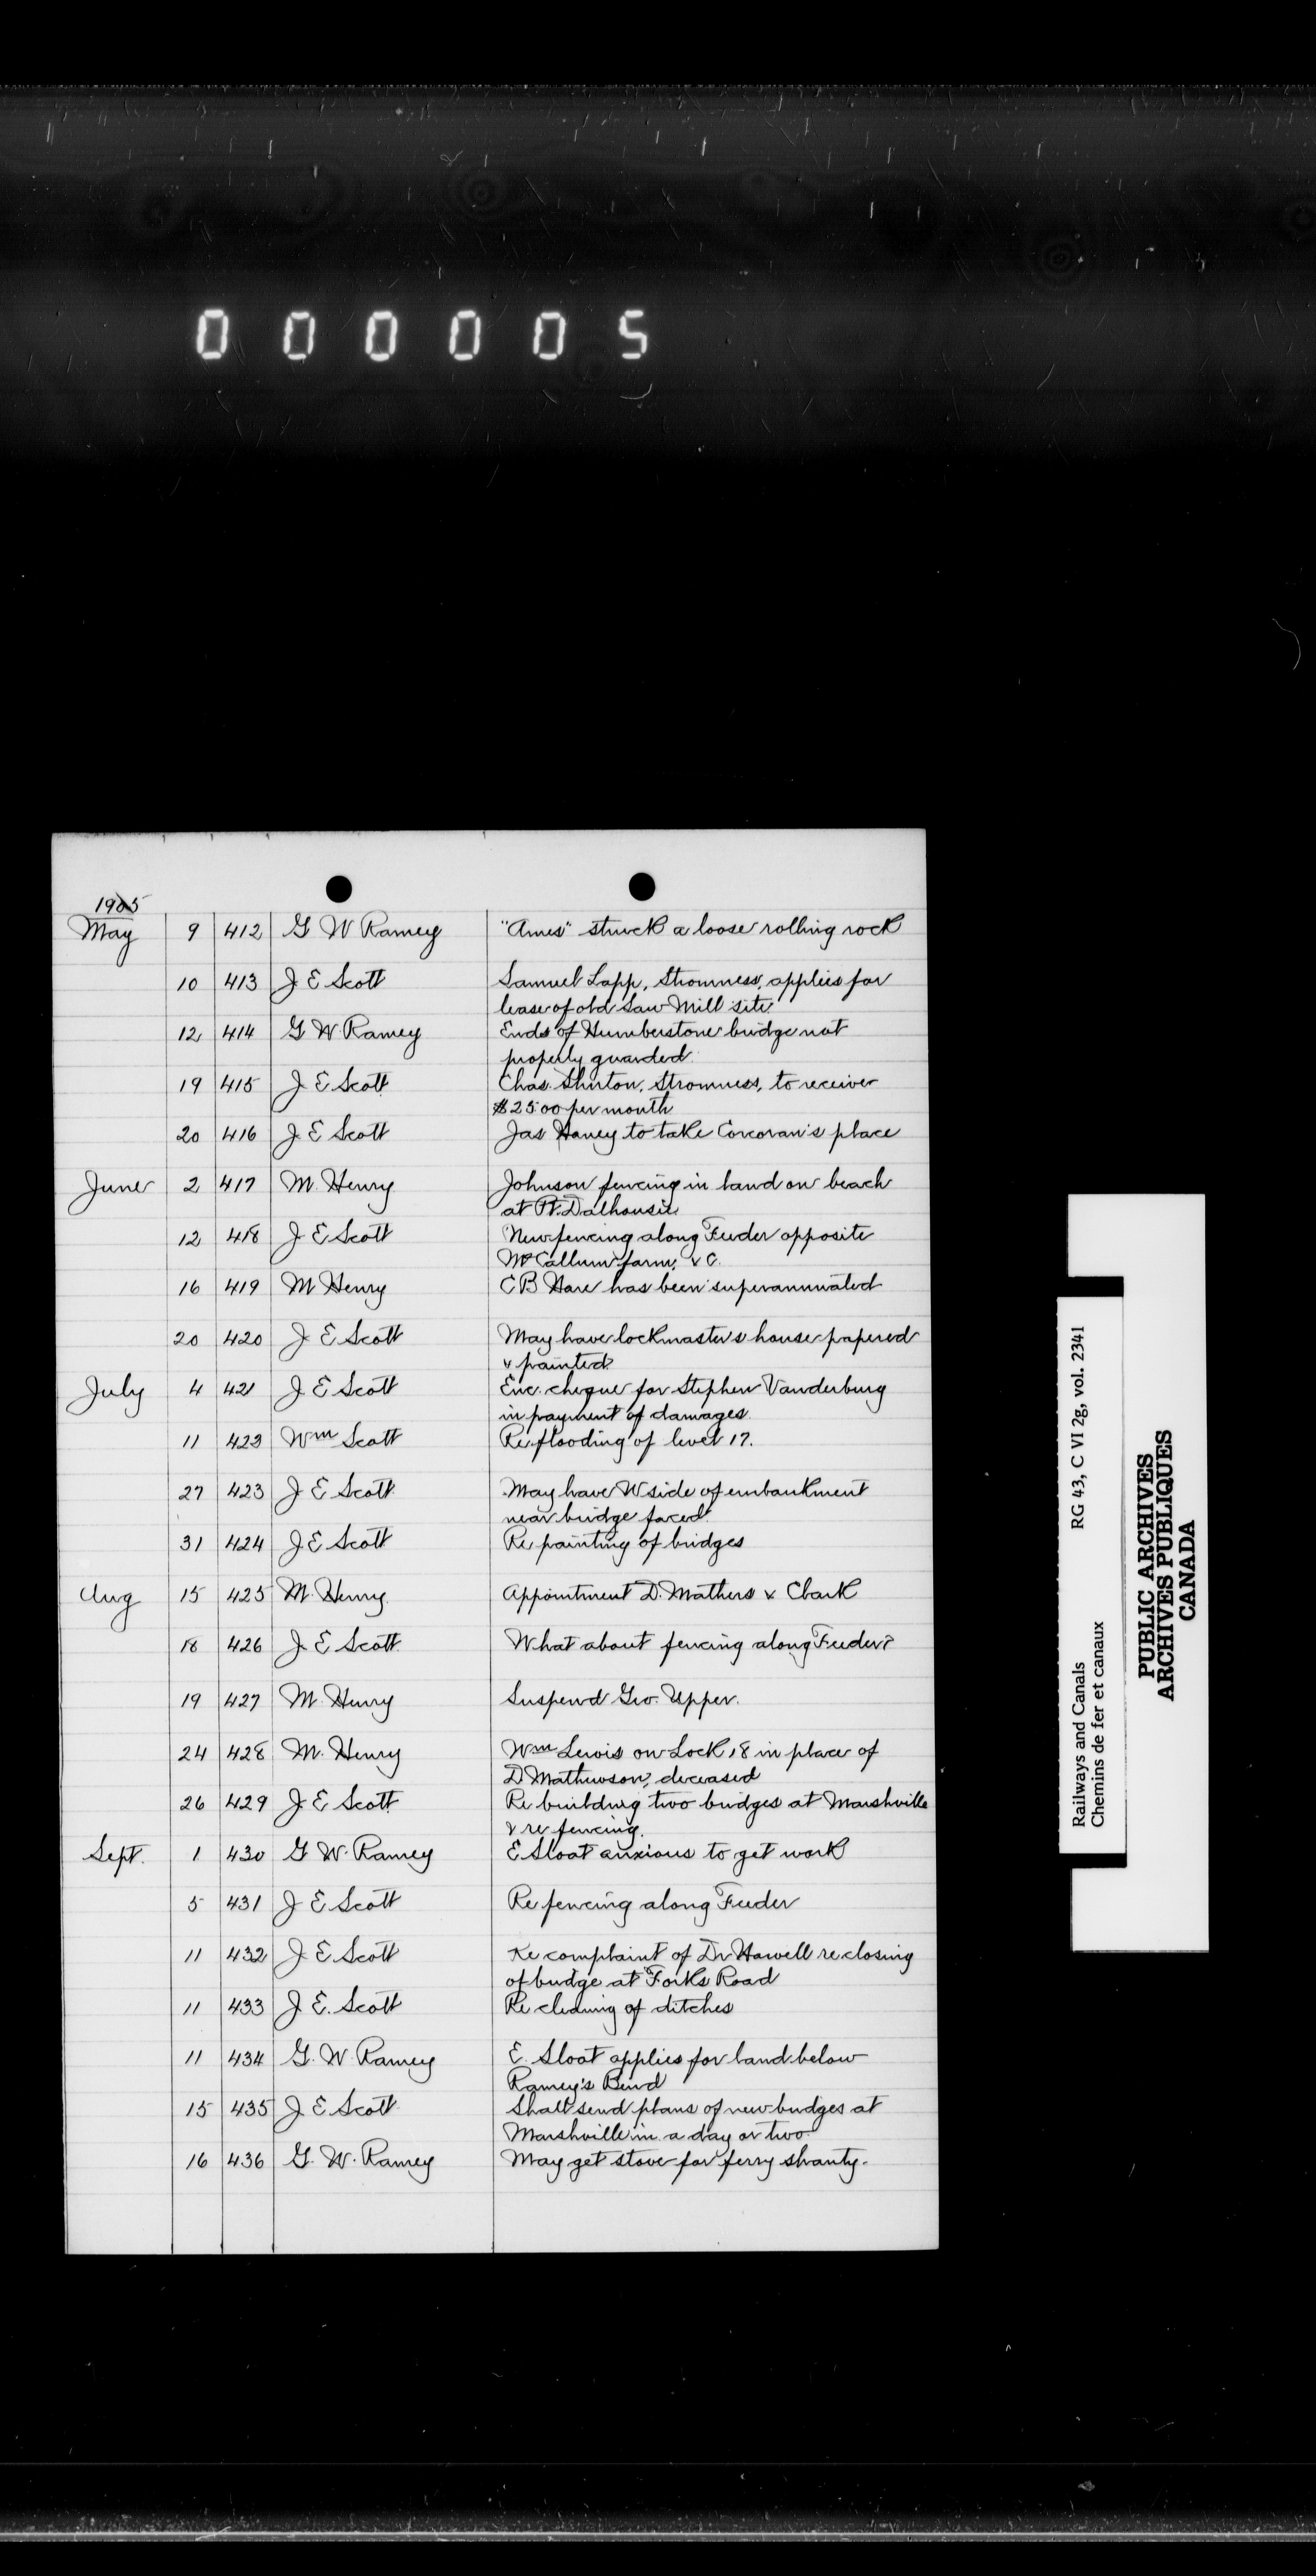 000005
1905
May 9 412 G W Ramey "Ames" struck a loose rolling rock
10 413 J E Scott Samuel Lapp, Stromness, applies for
lease of old Saw Mill site.
12 414 G W. Ramey Ends of Humberstone bridge not
properly guarded.
19 415 J E Scott Chas. Stromness, to receive
$25.00 per month
20 416 J. E Scott Jas Haney to take Corcoran's place
June 2 417 M. Henry Johnson fencing in land on beach
at Pt. Dalhousie
12 418 J E Scott New fencing along Feeder opposite
McCallum farm, &c.
16 419 M Henry C B Hare has been superannuated
20 420 J E Scott May have lockmaster's house papered
& painted.
July 4 421 J. E Scott Enc. cheque for Stephen Vanderburg
in payment of damages.
11 423 Wm Scott Re flooding of level 17.
27 423 J E Scott May have W side of embankment
near bridge faced
31 424 J E Scott Re painting of bridges
Aug 15 425 M. Henry Appointment D. Mathers & Clark
18 426 J E Scott What about fencing along Feeder?
19 427 M. Henry Suspend Geo. Upper.
24 428 M. Henry Wm Lewis on Lock 18 in place of
D Mathewson, deceased
26 429 J E Scott Re building two bridges at Marshville
& re fencing.
Sept. 1 430 G W. Ramey E Sloat anxious to get work
5 431 J E Scott Re fencing along Feeder
11 432 J E Scott Re complaint of Dr Howell re closing
of bridge at Forks Road
11 433 J E. Scott Re cleaning of ditches
11 434 G. W. Ramey E. Sloat applies for land below
Ramey's Bend
15 435 J E Scott Shall send plans of new bridges at
Marshville in a day or two
16 436 G. W. Ramey May get stove for ferry shanty.
Railways and Canals RG 43, C VI 2g, vol. 2341
Chemins de fer et canaux
PUBLIC ARCHIVES
ARCHIVES PUBLIQUES
CANADA